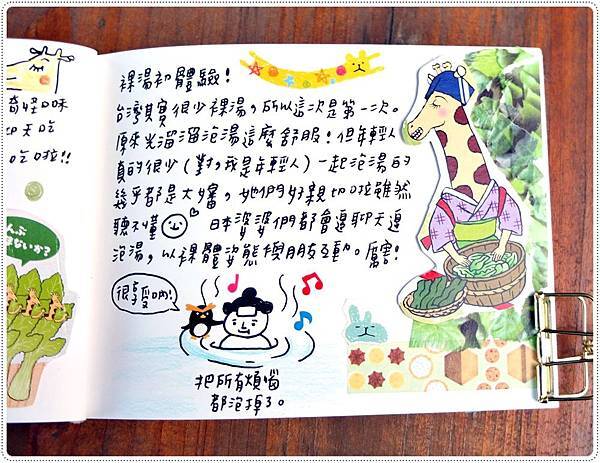 奇怪口味
天吃
吃啦!!
んぶ
ないか？
裸湯初體驗！
台灣其實很少裸湯，所以這次是第一次。
原來光溜溜泡湯這麼舒服！但年輕人
真的很少（對，我是年輕人）一起泡湯的
幾乎都是大嬸，她們好親切啦雖然
聽不懂 日本婆婆們都會邊聊天邊
泡湯，以裸體姿態與朋友互動。厲害！
很享受吶!
把所有煩惱
都泡掉了。